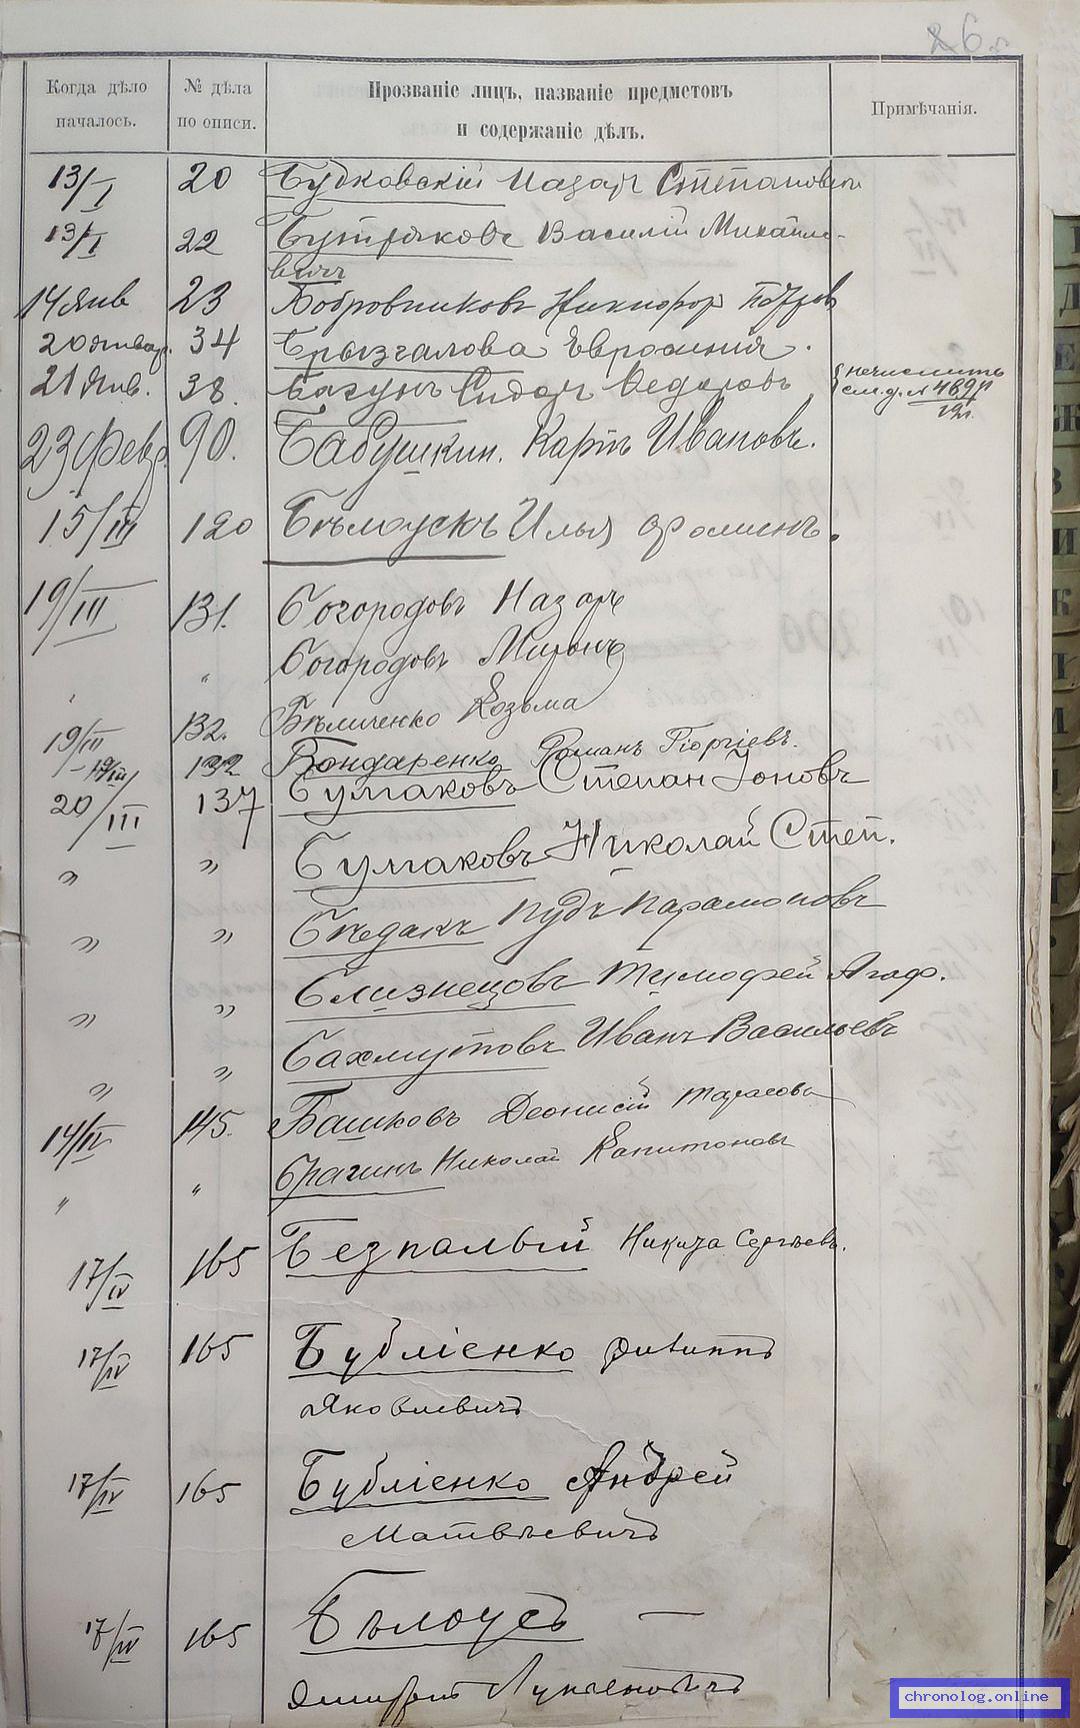 26
Когда дѣло началось.
№ дѣла по описи.
Прозваніе лицъ, названіе предметовъ и содержаніе дѣлъ.
Примѣчанія.
13/I 20 Будковскій Назар Степанович
13/I 22 Бутряковъ Василій Михайло-
вичъ
14 Янв 23 Бобровниковъ Никифор
20 январ. 34 Брызгалова Евросинія.
21 Янв. 38. Багунъ Сидор Федоровъ нечислить
см. д. № 489
12г.
23 февр. 90. Бабушкин. Карпъ Ивановъ.
15/III 120 Бѣлоускъ Илья Фоминъ.
19/III 131. Богородовъ Назаръ
" Богородовъ Миронъ
19/III 132. Бѣличенко Козьма
19/III 132 Бондаренко Романъ Гіоргіевъ.
20/III 137 Булгаковъ Степан Іоновъ
" " Булгаковъ Николай Степ.
" " Бѣдакъ Пудъ Парамоновъ
" " Близнецовъ Тимофей Агаф.
" " Бахмутовъ Иванъ Васильевъ
14/IV 145. Башковъ Деонисій Тарасовъ
" " Брагинъ Николай Капитоновъ
17/IV 165 Безпалый Никита Сергѣевъ.
17/IV 165 Бубліенко Филиппъ
Яковлевичъ
17/IV 165 Бубліенко Андрей
Матвѣевичъ
17/IV 165 Бѣлоусъ —
Дмитрій Лукьяновичъ
chronolog.online